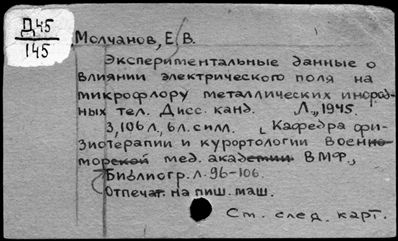 Д45
145
Молчанов, Е. В.
Экспериментальные данные о
влиянии электрического поля на
микрофлору металлических инород-
ных тел. Дисс. канд. Л., 1945.
3, 106 л., 6 л. илл. (Кафедра фи-
зиотерапии и курортологии военно-
морской мед. академии ВМФ.,
Библиогр. л. 96-106.
Отпечат. на пиш. маш.
См. след. карт.